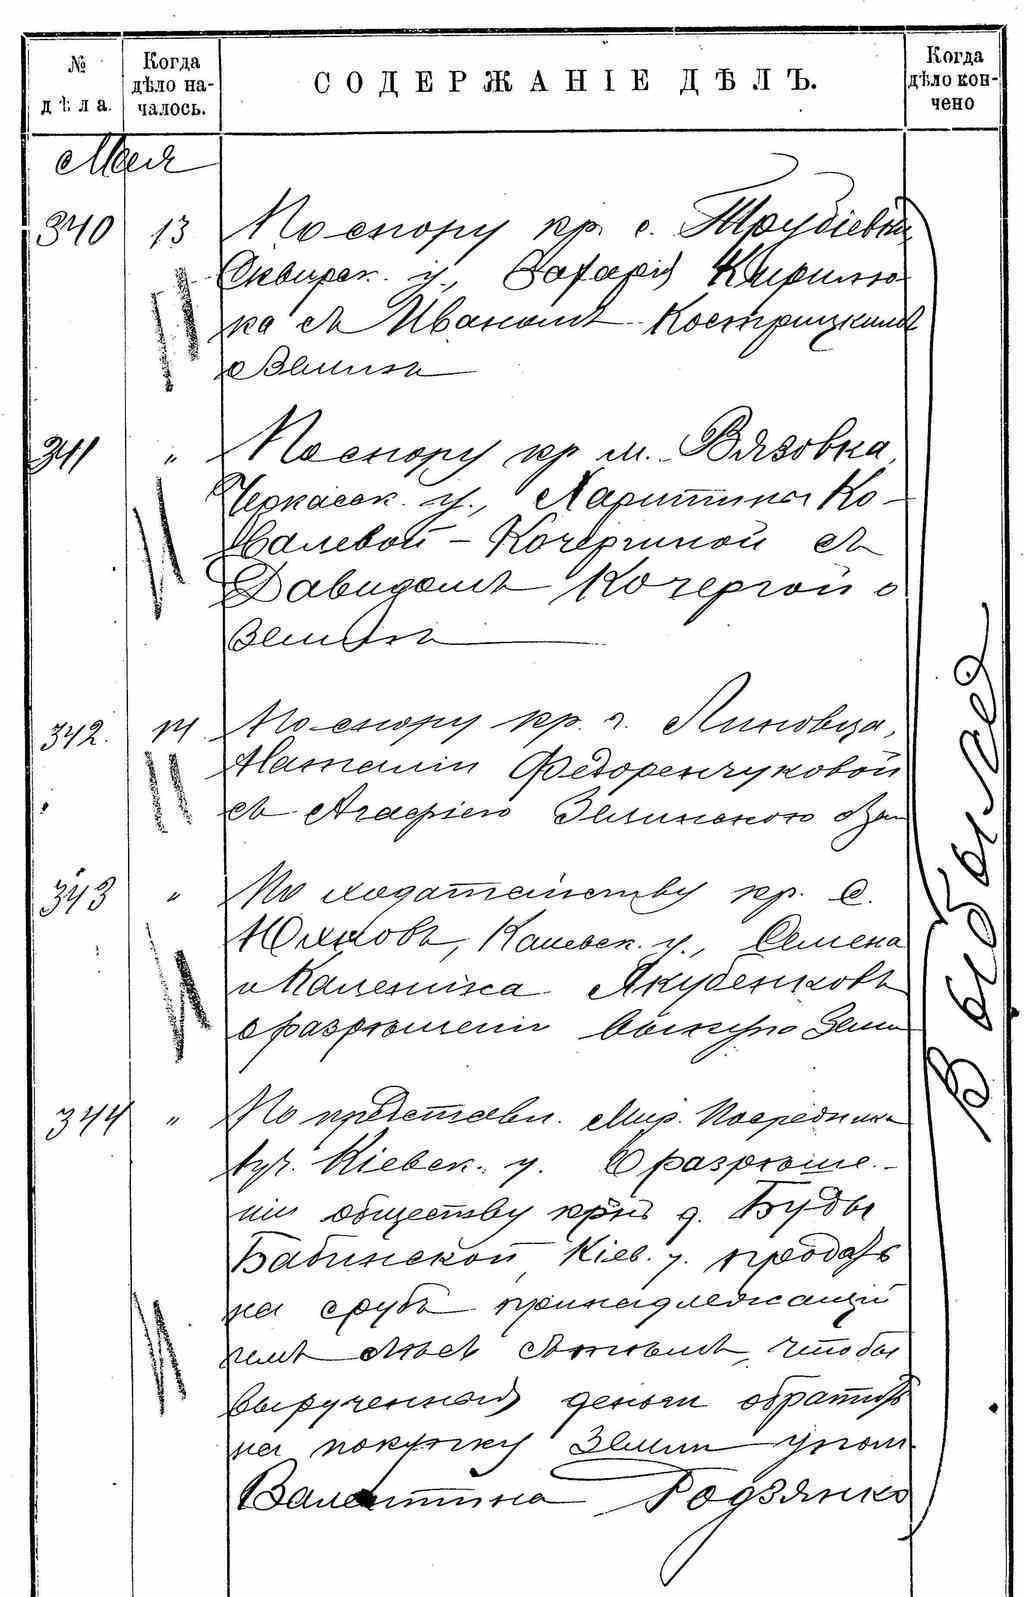 № дѣла.
Когда дѣло началось.
СОДЕРЖАНІЕ ДѢЛЪ.
Когда дѣло кончено
Мая
340 13 По спору кр. с. Трубіевки,
Сквирск. у., Захарія Кирилю-
ка съ Иваномъ Кострицкимъ
о земли
341 " По спору кр. м. Вязовка,
Черкасск. у., Харитины Ко-
валевой-Кочергиной съ
Давидомъ Кочергой о
земли
342. 14 По спору кр. г. Липовца,
Наталіи Федоренчуковой
съ Агафіею Зелинскою о зем
343 " По ходатайству кр. с.
Юхновъ, Каневск. у., Семена
и Каленика Якубенковъ
о разрѣшеніи выкупа земли
344 " По представл. Мир. Посредника
1 уч. Кіевск. у. о разрѣше-
ніи обществу крнъ д. Буды
Бабинской, Кіев. у. продать
на срубъ принадлежащій
имъ лѣсъ съ тѣмъ, чтобы
вырученныя деньги обратить
на покупку земли у пом.
Валентина Родзянко